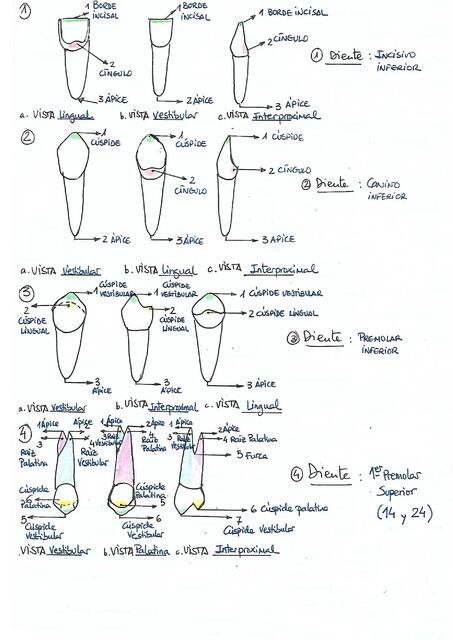 ①
1 BORDE INCISAL
2 CÍNGULO
3 ÁPICE
a. VISTA Lingual
1 BORDE INCISAL
2 ÁPICE
b. VISTA Vestibular
1 BORDE INCISAL
2 CÍNGULO
3 ÁPICE
c. VISTA Interproximal
① Diente : INCISIVO
INFERIOR
②
1 CÚSPIDE
2 ÁPICE
a. VISTA Vestibular
1 CÚSPIDE
2 CÍNGULO
3 ÁPICE
b. VISTA Lingual
1 CÚSPIDE
2 CÍNGULO
3 ÁPICE
c. VISTA Interproximal
② Diente : CANINO
INFERIOR
③
1 CÚSPIDE VESTIBULAR
2 CÚSPIDE LINGUAL
3 ÁPICE
a. VISTA Vestibular
1 CÚSPIDE VESTIBULAR
2 CÚSPIDE LINGUAL
3 ÁPICE
b. VISTA Interproximal
1 CÚSPIDE VESTIBULAR
2 CÚSPIDE LINGUAL
3 ÁPICE
c. VISTA Lingual
③ Diente : PREMOLAR
INFERIOR
④
1 Ápice
Ápice
3
Raíz Palatina
Raíz Vestibular
Cúspide Palatina
5
Cúspide Vestibular
. VISTA Vestibular
1 Ápice
2 Ápice
3 Raíz Vestibular
4 Raíz Palatina
Cúspide Palatina
5
6
Cúspide Vestibular
b. VISTA Palatina
1 Ápice
2 Ápice
3 Raíz
4 Raíz Palatina
5 Furca
6 Cúspide palatina
7 Cúspide Vestibular
c. VISTA Interproximal
④ Diente : 1er Premolar
Superior
(14 y 24)